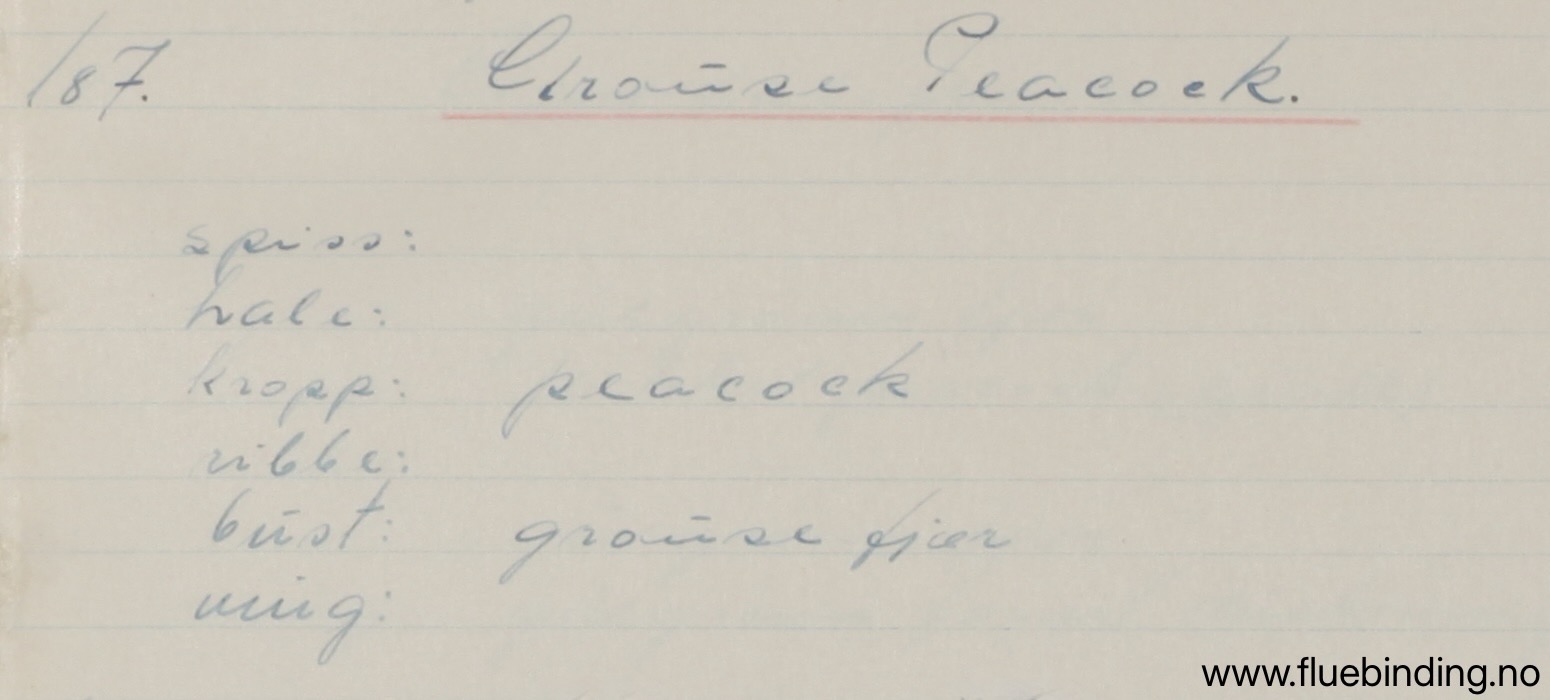 187. Grouse Peacock.
spiss:
hale:
kropp: peacock
ribbe:
bust: grouse fjær
ving:
www.fluebinding.no